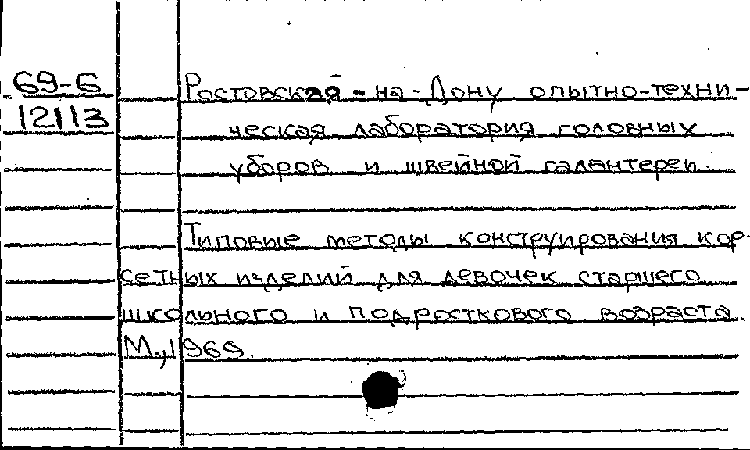 69-6 Ростовская-на-Дону опытно-техни-
12113 ческая лаборатория головных
уборов и швейной галантереи.
Типовые методы конструирования кор-
сетных изделий для девочек старшего
школьного и подросткового возраста.
М., 1969.